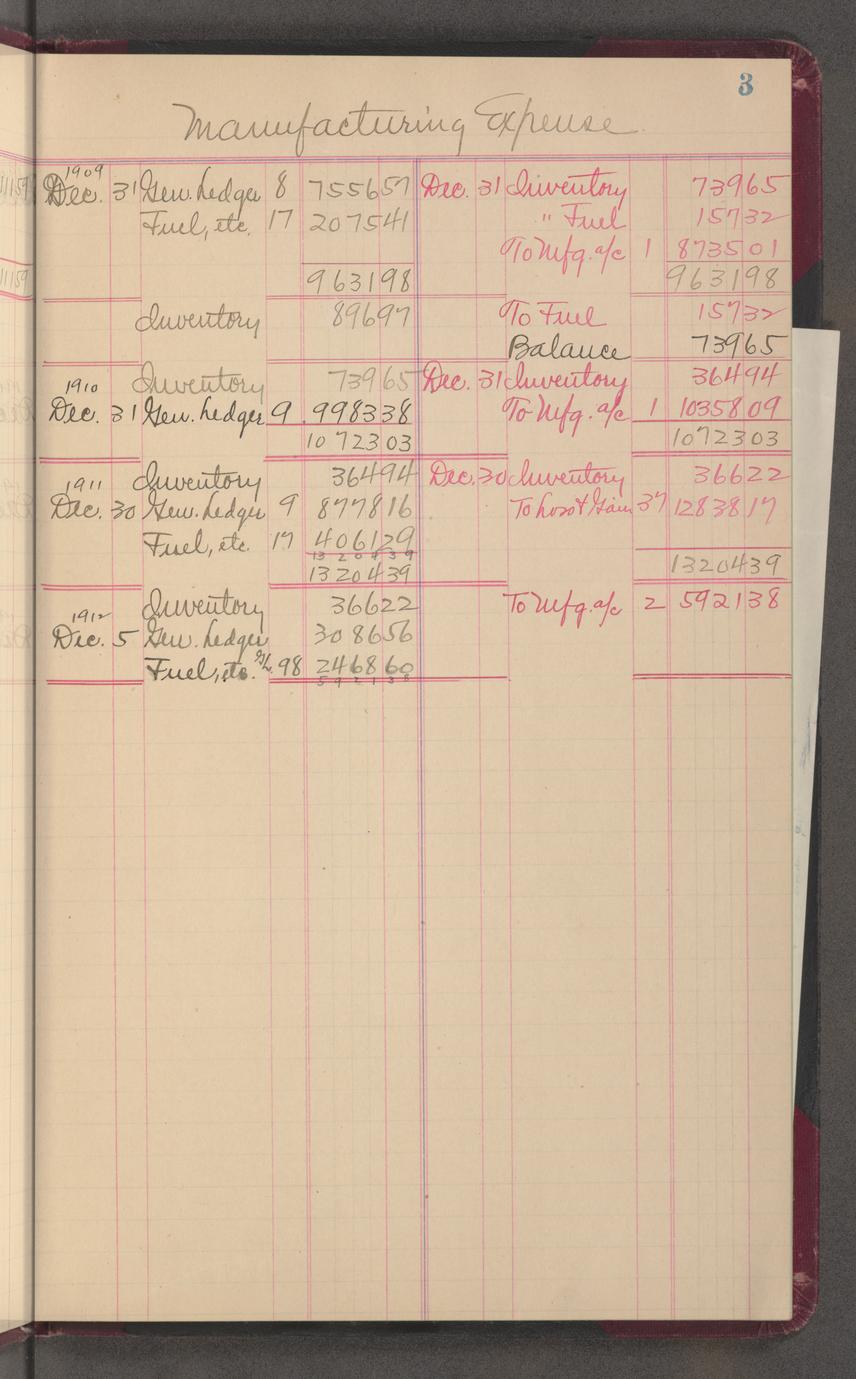 3
Manufacturing Expense
1909
Dec. 31 Gen. Ledger 8 755657 Dec. 31 Inventory 73965
Fuel, etc. 17 207541 " Fuel 15732
To Mfg. a/c 1 873501
963198 963198
Inventory 89697 To Fuel 15732
Balance 73965
Inventory 73965 Dec. 31 Inventory 36494
1910
Dec. 31 Gen. Ledger 9 998338 To Mfg. a/c 1 1035809
1072303 1072303
Inventory 36494 Dec. 30 Inventory 36622
1911
Dec. 30 Gen. Ledger 9 877816 To Loss & Gain 37 1283817
Fuel, etc. 17 406129
1320439
1320439 1320439
Inventory 36622 To Mfg. a/c 2 592138
1912
Dec. 5 Gen. Ledger 308656
Fuel, etc. 98 246860
592138
11159
11159